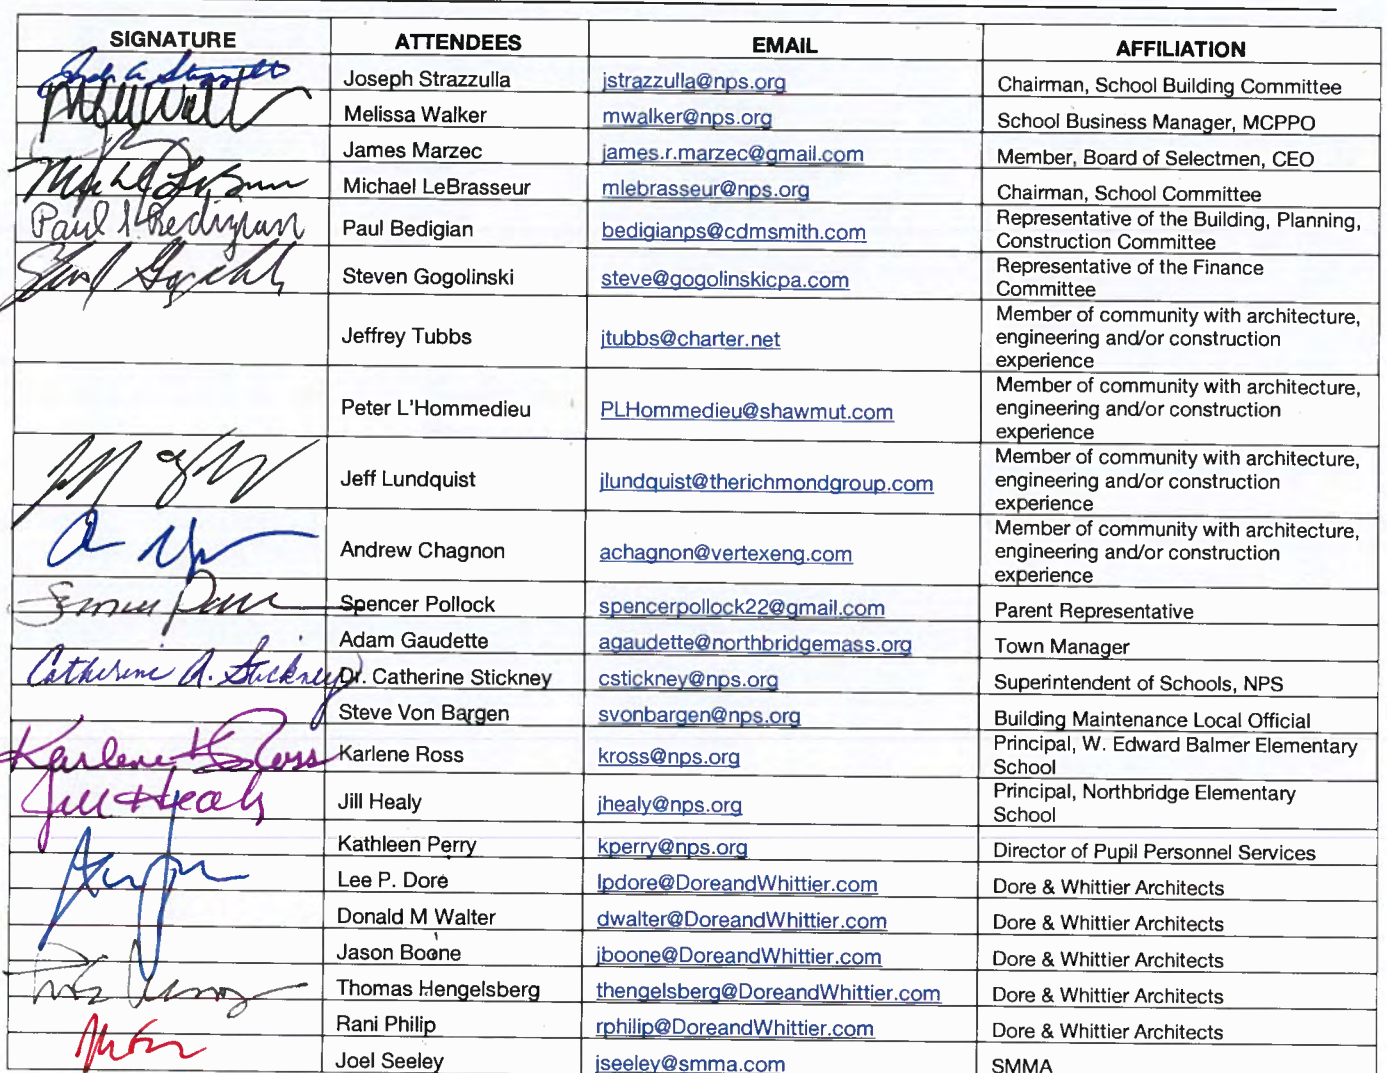 SIGNATURE ATTENDEES EMAIL AFFILIATION
Joseph Strazzulla jstrazzulla@nps.org Chairman, School Building Committee
Melissa Walker mwalker@nps.org School Business Manager, MCPPO
James Marzec james.r.marzec@gmail.com Member, Board of Selectmen, CEO
Michael LeBrasseur mlebrasseur@nps.org Chairman, School Committee
Paul Bedigian bedigianps@cdmsmith.com Representative of the Building, Planning,
Construction Committee
Steven Gogolinski steve@gogolinskicpa.com Representative of the Finance
Committee
Jeffrey Tubbs jtubbs@charter.net Member of community with architecture,
engineering and/or construction
experience
Peter L'Hommedieu PLHommedieu@shawmut.com Member of community with architecture,
engineering and/or construction
experience
Jeff Lundquist jlundquist@therichmondgroup.com Member of community with architecture,
engineering and/or construction
experience
Andrew Chagnon achagnon@vertexeng.com Member of community with architecture,
engineering and/or construction
experience
Spencer Pollock spencerpollock22@gmail.com Parent Representative
Adam Gaudette agaudette@northbridgemass.org Town Manager
Catherine A. Stickney Dr. Catherine Stickney cstickney@nps.org Superintendent of Schools, NPS
Steve Von Bargen svonbargen@nps.org Building Maintenance Local Official
Karlene Ross Karlene Ross kross@nps.org Principal, W. Edward Balmer Elementary
School
Jill Healy Jill Healy jhealy@nps.org Principal, Northbridge Elementary
School
Kathleen Perry kperry@nps.org Director of Pupil Personnel Services
Lee P. Dore lpdore@DoreandWhittier.com Dore & Whittier Architects
Donald M Walter dwalter@DoreandWhittier.com Dore & Whittier Architects
Jason Boone jboone@DoreandWhittier.com Dore & Whittier Architects
Thomas Hengelsberg thengelsberg@DoreandWhittier.com Dore & Whittier Architects
Rani Philip rphilip@DoreandWhittier.com Dore & Whittier Architects
Joel Seeley jseeley@smma.com SMMA